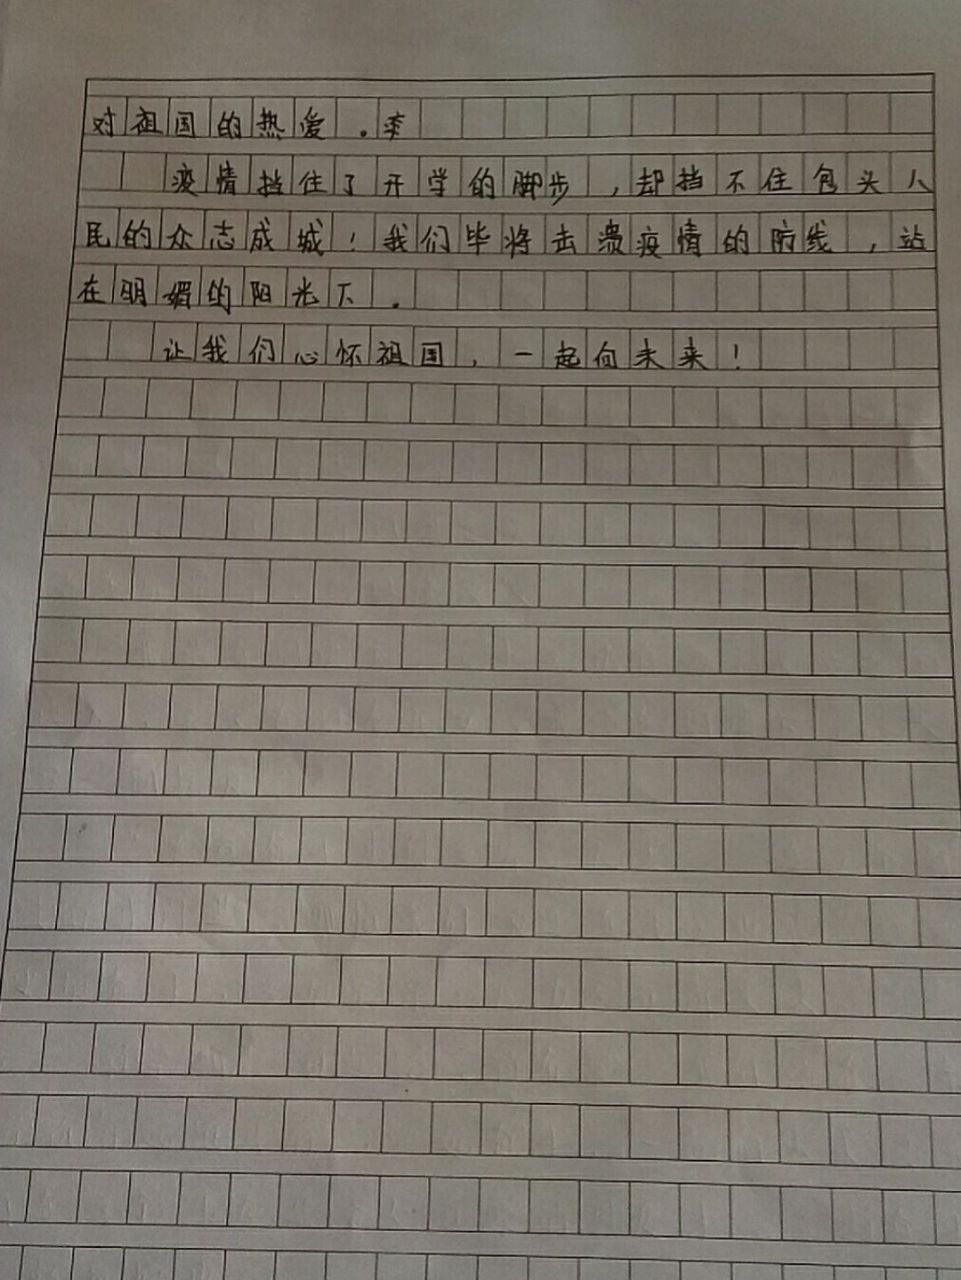 对祖国的热爱。李
疫情挡住了开学的脚步,却挡不住包头人
民的众志成城!我们毕将击溃疫情的防线,站
在明媚的阳光下。
让我们心怀祖国,一起向未来!